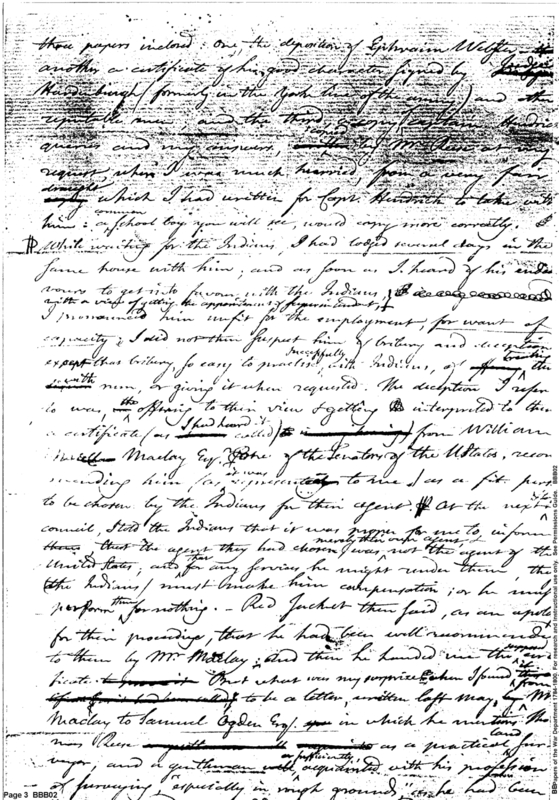 three papers inclosed: one, the deposition of Ephraim
another a certificate of his good character signed by
Hardenburgh (formerly in the York line of the army) and other
reputable men and the third, a copy
queries and my answers, copied by Mr. Rees at my
request, when I was much hurried, from a very fair
draught which I had written for Capt. Hendrick to take with
him: a common school boy you will see, would copy more correctly.
While waiting for the Indians, I had lodged several days in the
same house with him; and as soon as I heard of his endea
vours to get into favour with the Indians,
with a view of getting the appointment of superintendent,
I pronounced him unfit for the employment, for want of
capacity; I did not then suspect him of bribery and deception
except that bribery so easy to practise successfully with Indians, of treating the
with rum, or giving it when requested. The deception I refer
to was, the offering to their view & getting interpreted to them
a certificate (as I had heard it called) from William
Maclay Esq. one of the Senators of the U States, recom
mending him (as it was represented to me) as a fit person
to be chosen by the Indians for their agent. At the next
council, I told the Indians that it was proper for me to inform
that the agent they had chosen was merely their own agent, & not the agent of the
United States; and that for any services he might render them, they
(the Indians) must make him compensation; or he must
perform them for nothing. - Red Jacket then said, as an apology
for their proceeding, that he had been well recommended
to them by Mr Maclay; and then he handed me the certi
ficate. But what was my surprise when I found it
to be a letter, written last May, from Mr.
Maclay to Samuel Ogden Esq. in which he mentions Tho
mas Rees as a practical land sur
veyor, and a gentleman sufficiently acquainted with his profession
of surveying, especially in rough grounds, as he had been
Page 3 BBB02
Papers of the War Department 1784-1800. For research and instructional use only. See Permissions Guide. BBB02